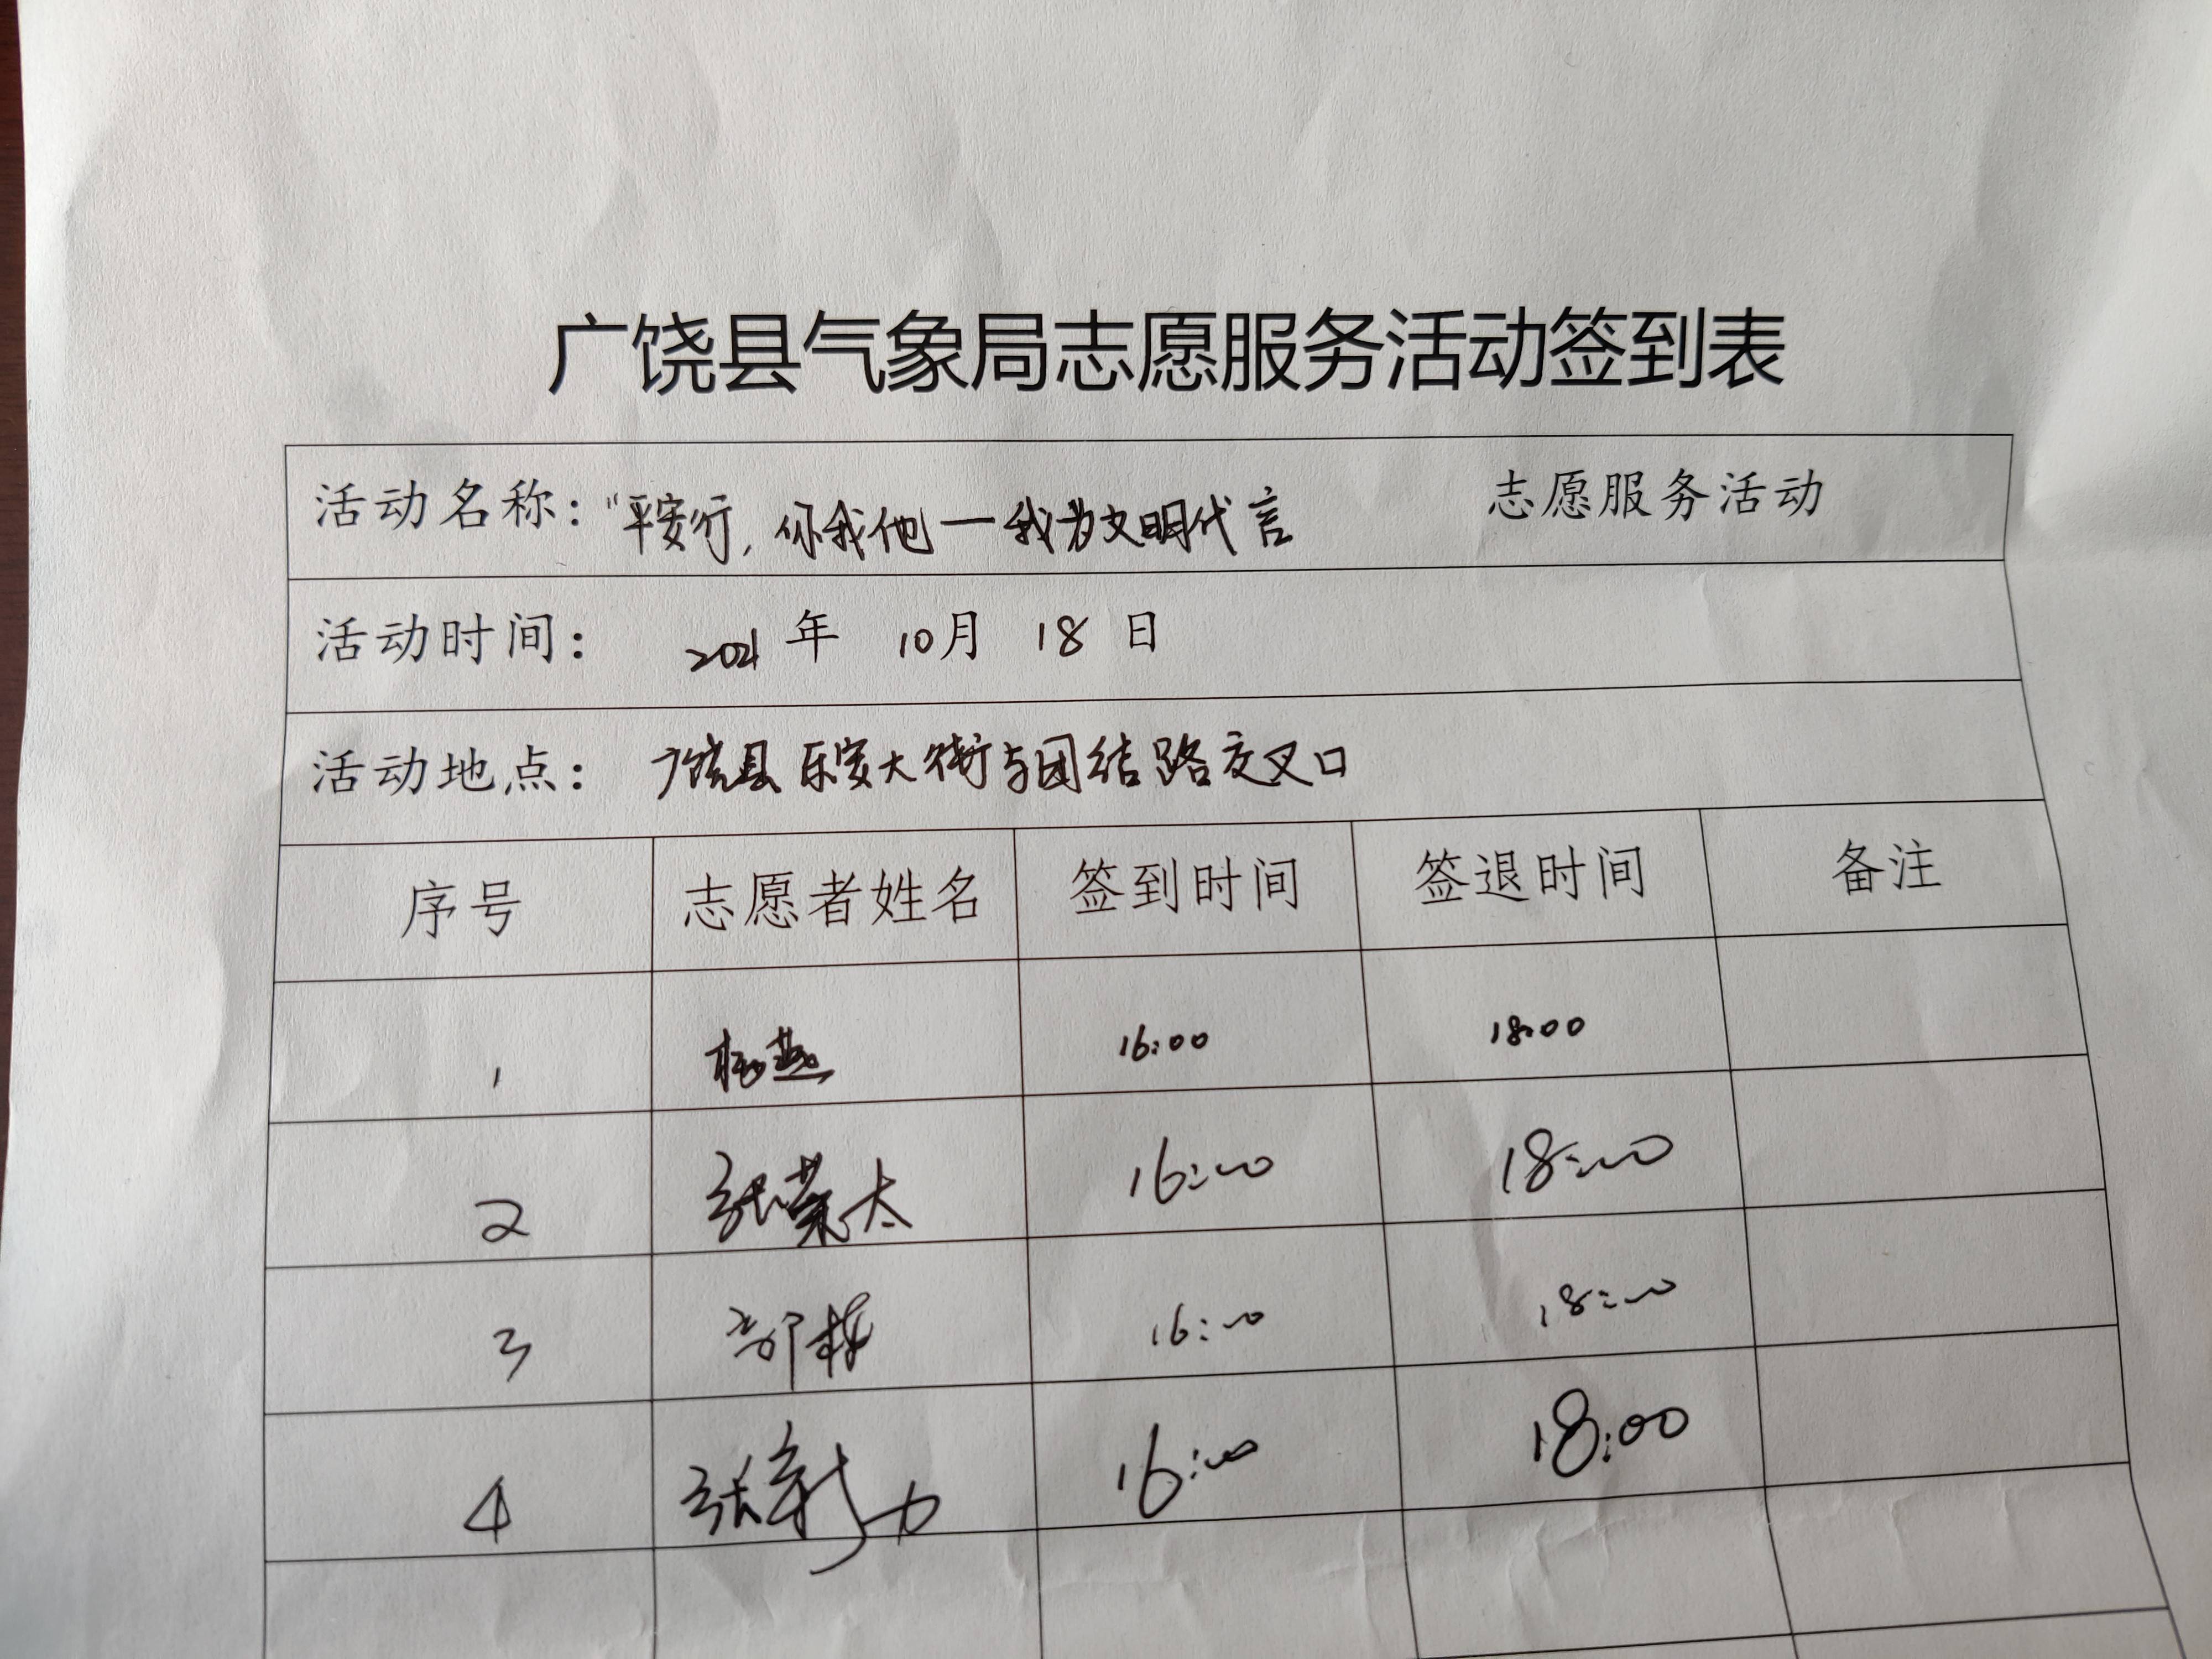 广饶县气象局志愿服务活动签到表
活动名称：“平安行，你我他一我为文明代言 志愿服务活动
活动时间： 2021 年 10月 18 日
活动地点： 广饶县乐安大街与团结路交叉口
序号 志愿者姓名 签到时间 签退时间 备注
1 16:00 18:00
2 张荣太 16:00 18:00
3 16:00 18:00
4 张新力 16:00 18:00